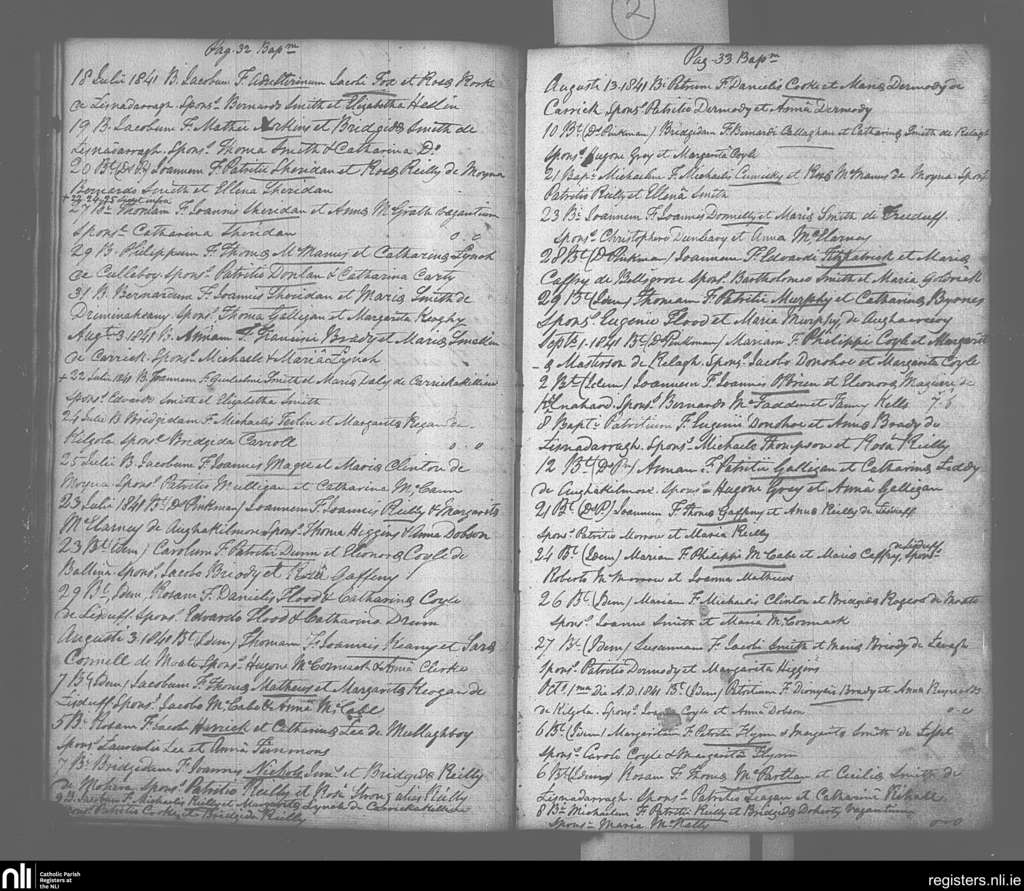 2
Pag. 32 Bapm
18 Julii 1841 B. Jacobum F. Adulterinum Jacobi Fox et Rosæ Rorke
de Lisnadarragh. Spons. Bernardo Smith et Elizabetha Heslin
19 B. Jacobum F. Mathei Arkins et Bridgidæ Smith de
Lisnadarragh. Spons. Thoma Smith & Catharina Do
20 Bt (Dr P) Joannem F. Patritii Sheridan et Rosæ Reilly de Moyna
Bernardo Smith et Ellena Sheridan
+ 22, 24, 25 infra
27 Bt Thomam F. Joannis Sheridan et Annæ McGrath vagantium
Spons. Catharina Sheridan o . o
29 B. Philippum F. Thomæ McManus et Catharinæ Lynch
de Culleboy Spons. Patritio Donlan & Catharina Carty
31 B. Bernardum F. Joannis Sheridan et Mariæ Smith de
Druminakeany Spons. Thoma Galligan et Margarita Keoghy
Augti 3 1841 B. Annam F. Francisci Brady et Mariæ
de Carrick. Spons. Michaele & Mariâ Lynch
+ 22 Julii 1841 B. Joannem F. Gulielmi Smith et Mariæ Daly de
Spons. Edvardo Smith et Elizabetha Smith
24 Julii B. Bridgidam F. Michaelis et Margaritæ Regan de
Kilgola Spons. Bridgida Carroll o . o
25 Julii B. Jacobum F. Joannis Mague et Mariæ Clinton de
Moyna Spons. Patritio Mulligan et Catharina McCann
23 Julii 1841 Bt (Dr Pinkman) Joannem F. Joannis Reilly & Margaritæ
McElarney de Aughakilmore Spons. Thoma Higgins & Anna Dobson
23 Bt (Idem) Carolum F. Patritii Dunn et Eleonoræ Coyle de
Ballina. Spons. Jacobo Briody et Rosâ Gaffeny
29 Bt, Idem, Rosam F. Danielis Flood & Catharinæ Coyle
de Lisduff Spons. Edvardo Flood & Catharina Drum
Augusti 3. 1841 Bt (Idem) Thomam F. Joannis Keany et Saræ
Connell de Moate Spons. Hugone McCormack & Anna Clerke
7 Bt (Idem) Jacobum F. Thomæ Mathews et Margaritæ Keogan de
Lisduff Spons. Jacobo McCabe & Anna McCabe
5 Bt Rosam F. Jacobi Herrick et Catharinæ Lee de Mullaghboy
Spons. Laurentio Lee et Annâ Timmons
7 Bt Bridgidam F. Joannis Nichols Junr. et Bridgidæ Reilly
de Mohera Spons. Patritio Reilly et Rosâ alias Reilly
9 B. Jacobum F. Michaelis Reilly et Margaritæ Lynch de
Spons. Patritio Cooke et Bridgida Reilly
Pag. 33 Bapm
Augusti 13. 1841 Bt Petrum F. Danielis Cooke et Mariæ Dermody de
Carrick Spons. Patritio Dermody et Annâ Dermody
10 Bt (Dr Pinkman) Bridgidam F. Bernardi Callaghan et Catharinæ Smith de Kelagh
Spons. Hugone Grey et Margarita Coyle
21 Bapt. Michaelem F. Michaelis et Rosæ McManus de Moyna Spons.
Patritio Reilly et Ellenâ Smith
23 Bt Joannem F. Joannis Donnelly et Mariæ Smith de Freeduff
Spons. Christophero Dunlavy et Anna McElarney
28 Bt (Dr Pinkman) Joannem F. Edvardi Fitzpatrick et Mariæ
Caffry de Bellsgrove Spons. Bartholomeo Smith et Maria Goldrick
29 Bt (Idem) Thomam F. Patritii Murphy et Catharinæ Byrnes
Spons. Eugenio Flood et Maria Murphy de
Septr. 1. 1841 Bt (Dr Pinkman) Mariam F. Philippi Coyle et Margarit-
-æ Masterson de Kelagh. Spons. Jacobo Donohoe et Margarita Coyle
2 Bt (Idem) Joannem F. Joannis O'Brien et Eleonoræ Maguire de
Spons. Bernardo McFadden et Fanny Kells
8 Bapt. Patritium F. Eugenii Donohoe et Annæ Brady de
Lisnadarragh. Spons. Michaele Thompson et Rosâ Reilly
12 Bt (Dr P.) Annam F. Patritii Galligan et Catharinæ Leddy
de Aughakilmore. Spons. Hugone Grey et Annâ Galligan
21 Bt (Dr P) Joannem F. Thomæ Gaffeny et Annæ Reilly de Lisduff
Spons. Patritio Morrow et Maria Reilly
24 Bt (Idem) Mariam F. Philippi McCabe et Mariæ Caffry de Lisduff. Spons.
Roberto McMorrow et Joanna Mathews
26 Bt (Idem) Mariam F. Michaelis Clinton et Bridgidæ Rogers de Moate
Spons. Joanne Smith et Maria McCormack
27 Bt (Idem) Susannam F. Jacobi Smith et Mariæ Briody de Lavagh
Spons. Patritio Dermody et Margarita Higgins
Octr. 1ma Die A.D. 1841 Bt (Idem) Petrum F. Dionysii Brady et Annæ Reynolds
de Kilgola. Spons. Coyle et Anna Dobson o-o
6 Bt (Idem) Margaritam F. Petri Flynn & Margaritæ Smith de
Spons. Carolo Coyle & Margarita Flynn
6 Bt (Idem) Rosam F. Thomæ McPartlan et Ceciliæ Smith de
Lisnadarragh. Spons. Patritio Leagan et Catharinâ
8 Bt Michaelem F. Patritii Reilly et Bridgidæ Doherty Vagantium
Spons. Maria McNally o-o-o
nli
Catholic Parish
Registers at
the NLI
registers.nli.ie